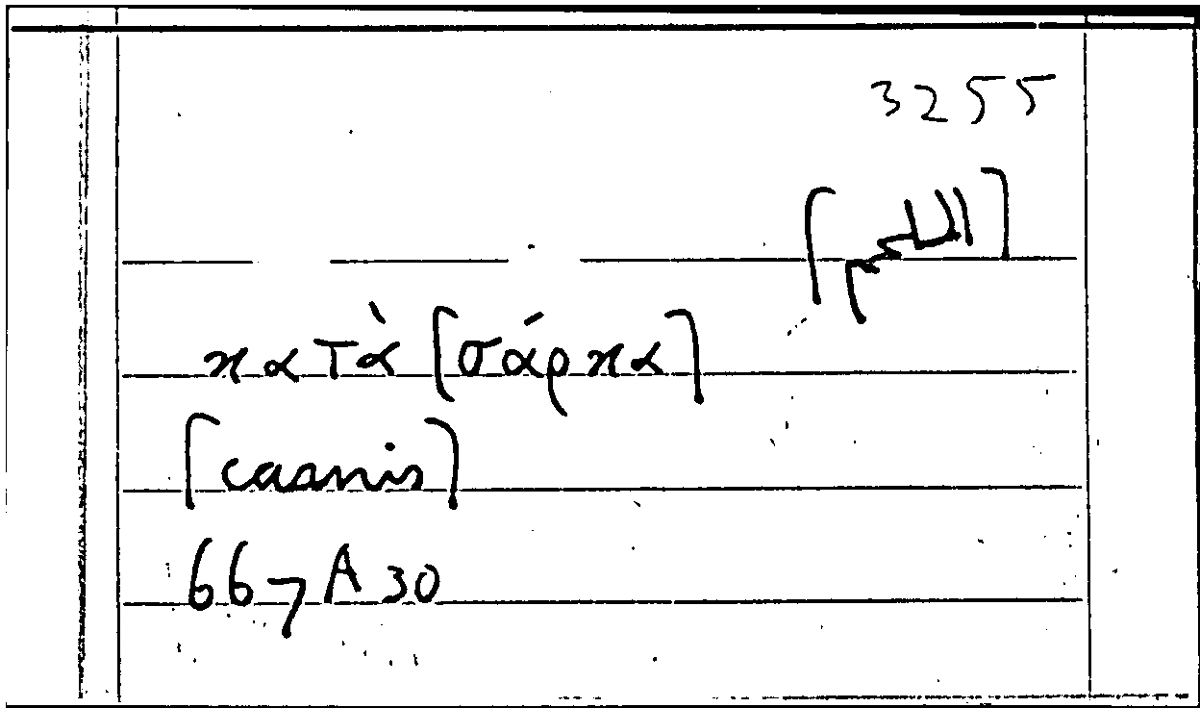 3255
[اللحم]
κατὰ [σάρκα]
[carnis]
667 A 30